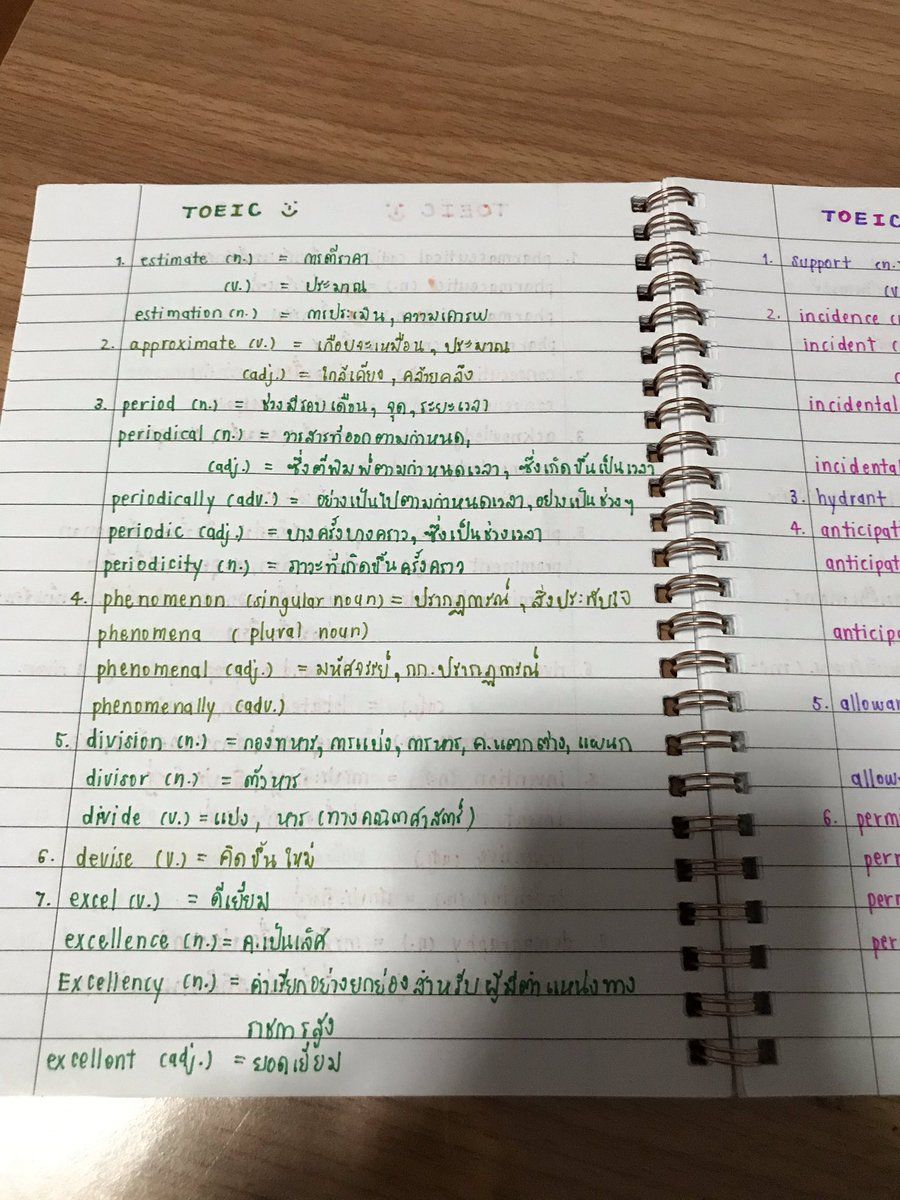 TOEIC
1. estimate (n.) = การตีราคา
(v.) = ประมาณ
estimation (n.) = การประเมิน, ความเคารพ
2. approximate (v.) = เกือบจะเหมือน, ประมาณ
(adj.) = ใกล้เคียง, คล้ายคลึง
3. period (n.) = ช่วงมีรอบเดือน, จุด, ระยะเวลา
periodical (n.) = วารสารที่ออกตามกำหนด,
(adj.) = ซึ่งตีพิมพ์ตามกำหนดเวลา, ซึ่งเกิดขึ้นเป็นเวลา
periodically (adv.) = อย่างเป็นไปตามกำหนดเวลา, อย่างเป็นช่วงๆ
periodic (adj.) = บางครั้งบางคราว, ซึ่งเป็นช่วงเวลา
periodicity (n.) = ภาวะที่เกิดขึ้นครั้งคราว
4. phenomenon (singular noun) = ปรากฏการณ์, สิ่งประทับใจ
phenomena (plural noun)
phenomenal (adj.) = มหัศจรรย์, กก. ปรากฏการณ์
phenomenally (adv.)
5. division (n.) = กองทหาร, การแบ่ง, การหาร, ค.แตกต่าง, แผนก
divisor (n.) = ตัวหาร
divide (v.) = แบ่ง, หาร (ทางคณิตศาสตร์)
6. devise (v.) = คิดขึ้นใหม่
7. excel (v.) = ดีเยี่ยม
excellence (n.) = ค.เป็นเลิศ
Excellency (n.) = คำเรียกอย่างยกย่องสำหรับผู้มีตำแหน่งทาง
ราชการสูง
excellent (adj.) = ยอดเยี่ยม
TOEIC
1. support (n.
(v
2. incidence (
incident (
(
incidental
incidental
3. hydrant
4. anticipat
anticipat
anticipa
5. allowan
allow
6. perm
perr
perr
per